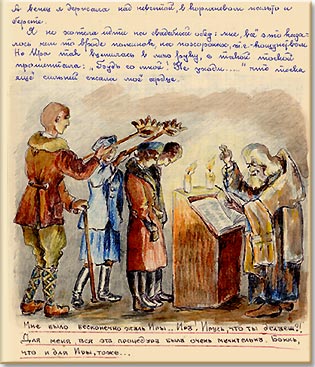 А венец я держала над невестой, в коричневом пальто и
берете.
Я не хотела идти на свадебный обед: мне всё это каза-
лось чем-то вроде поминок, но
Но Ира так вцепилась в мою руку, с такой тоской
прошептала: „Будь со мной! Не уходи....“ что тоска
ещё сильней сжала моё сердце.
Мне было бесконечно жаль Иры.. Ира! Ирусь, что ты делаешь?!
Для меня вся эта процедура была очень мучительна. Боюсь,
что и для Иры, тоже...